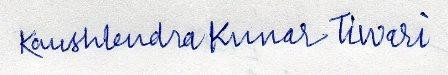 Kaushlendra Kumar Tiwari